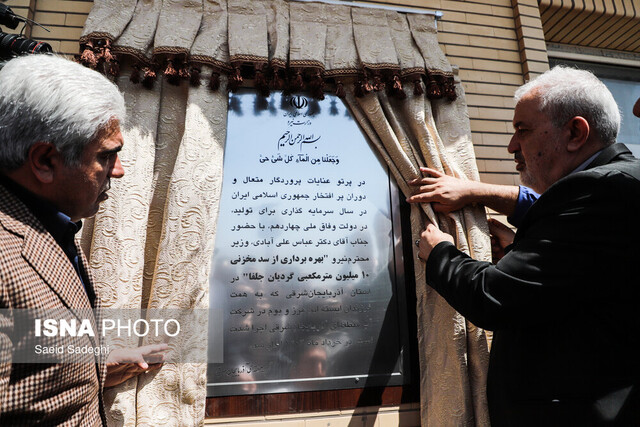 وزارت نیرو
بسم الله الرحمن الرحیم
وَجَعَلْنا مِنَ الْماءِ كُلَّ شَيْءٍ حَيٍّ
در پرتو عنایات پروردگار متعال و
دوران پر افتخار جمهوری اسلامی ایران
در سال سرمایه گذاری برای تولید،
در دولت وفاق ملی چهاردهم، با حضور
جناب آقای دکتر عباس علی آبادی، وزیر
محترم نیرو "بهره برداری از سد مخزنی
۱۰ میلیون مترمکعبی گردیان جلفا" در
استان آذربایجان شرقی که به همت
مرز و بوم در شرکت
شرقی اجرا شده
است در خرداد ماه
ISNA PHOTO
Saeid Sadeghi